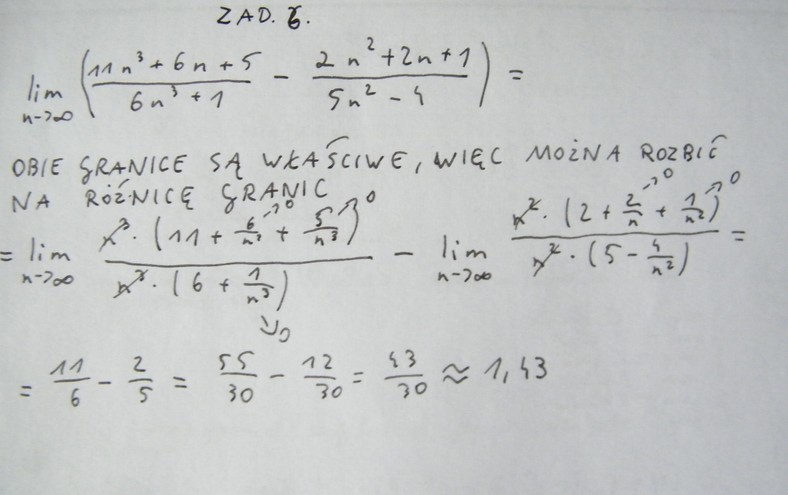 ZAD. 6.
lim n->∞ ( (11n³ + 6n + 5)/(6n³ + 1) - (2n² + 2n + 1)/(5n² - 4) ) =
OBIE GRANICE SĄ WŁAŚCIWE, WIĘC MOŻNA ROZBIĆ
NA RÓŻNICĘ GRANIC
= lim n->∞ (n³ · (11 + 6/n² →0 + 5/n³ →0))/(n³ · (6 + 1/n³ →0)) - lim n->∞ (n² · (2 + 2/n →0 + 1/n² →0))/(n² · (5 - 4/n²)) =
= 11/6 - 2/5 = 55/30 - 12/30 = 43/30 ≈ 1,43